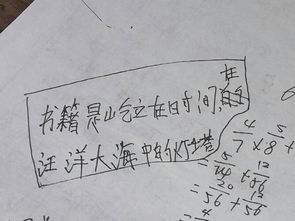 书籍是屹立在时间
汪洋大海中的灯塔
4/7 × 8
= 5/14 + 12/56
= 20/56 + 12/56